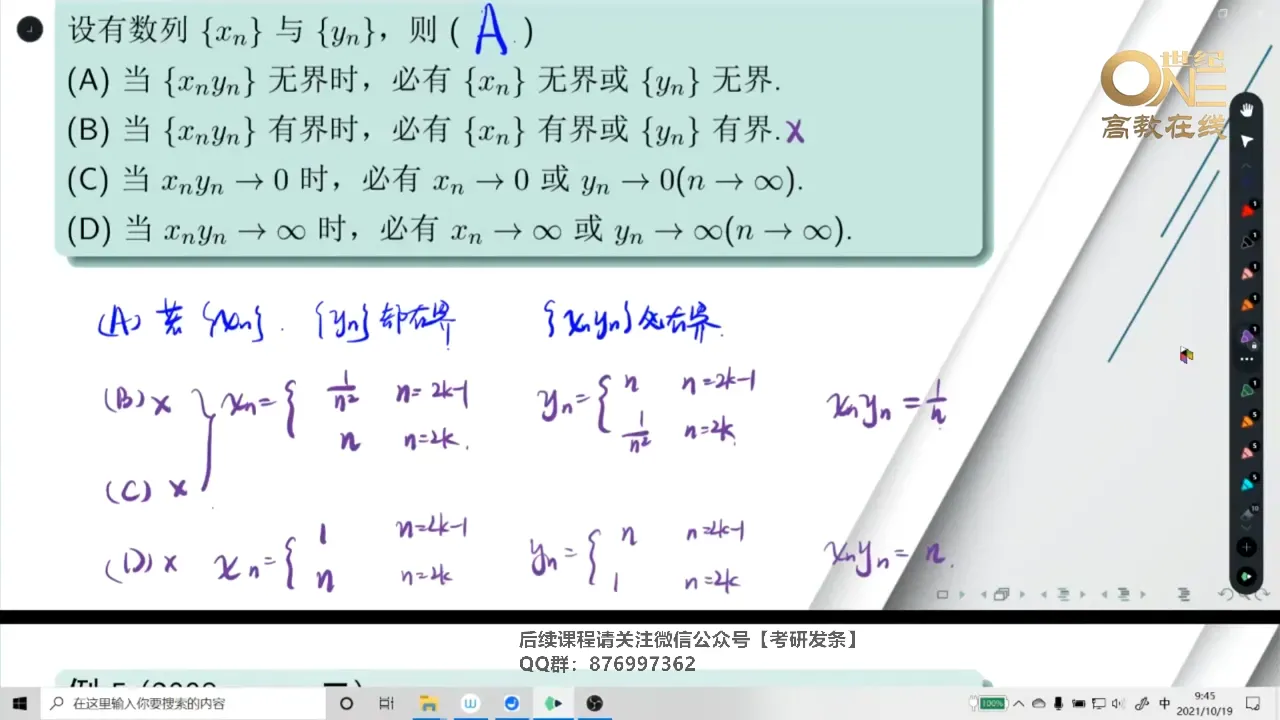 设有数列 {xₙ} 与 {yₙ}, 则 ( A )
(A) 当 {xₙyₙ} 无界时, 必有 {xₙ} 无界或 {yₙ} 无界.
(B) 当 {xₙyₙ} 有界时, 必有 {xₙ} 有界或 {yₙ} 有界. ×
(C) 当 xₙyₙ → 0 时, 必有 xₙ → 0 或 yₙ → 0(n → ∞).
(D) 当 xₙyₙ → ∞ 时, 必有 xₙ → ∞ 或 yₙ → ∞(n → ∞).
世纪
ONE
高教在线
(A) 若 {xₙ}. {yₙ} 却有界 {xₙyₙ} 必有界.
(B) × xₙ = { 1/n² n=2k-1 yₙ = { n n=2k-1 xₙyₙ = 1/n
n n=2k. 1/n² n=2k.
(C) ×
(D) × xₙ = { 1 n=2k-1 yₙ = { n n=2k-1 xₙyₙ = n.
n n=2k 1 n=2k
后续课程请关注微信公众号【考研发条】
QQ群：876997362
在这里输入你要搜索的内容
100%
中
9:45
2021/10/19